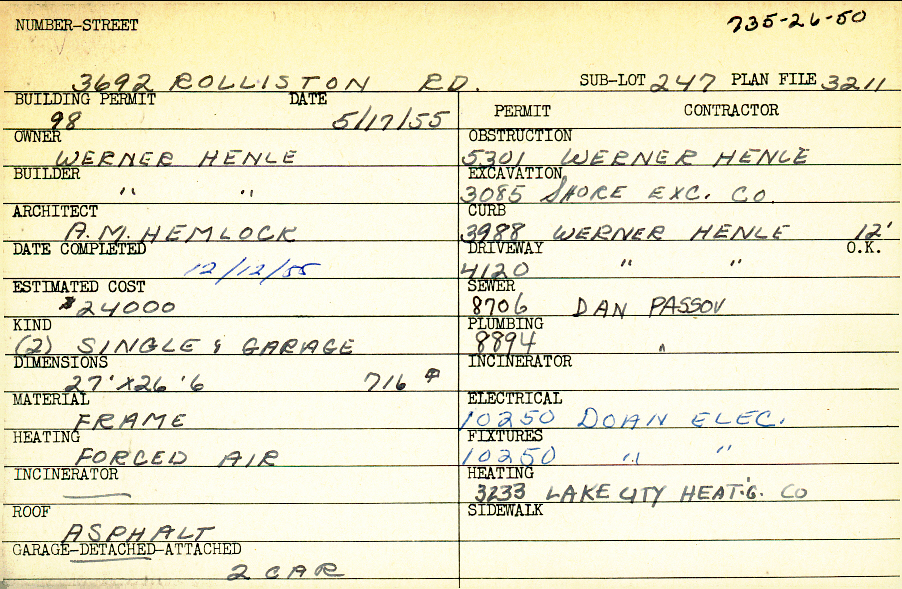 NUMBER-STREET 735-26-50
3692 ROLLISTON RD. SUB-LOT 247 PLAN FILE 3211
BUILDING PERMIT DATE
98 5/17/55
OWNER
WERNER HENLE
BUILDER
" "
ARCHITECT
A.M. HEMLOCK
DATE COMPLETED
12/12/55
ESTIMATED COST
$24000
KIND
(2) SINGLE & GARAGE
DIMENSIONS
27'X26'6 716
MATERIAL
FRAME
HEATING
FORCED AIR
INCINERATOR
ROOF
ASPHALT
GARAGE-DETACHED-ATTACHED
2 CAR
PERMIT CONTRACTOR
OBSTRUCTION
5301 WERNER HENLE
EXCAVATION
3085 SHORE EXC. CO.
CURB
3988 WERNER HENLE 12'
DRIVEWAY O.K.
4120 " "
SEWER
8706 DAN PASSOV
PLUMBING
8894 "
INCINERATOR
ELECTRICAL
10250 DOAN ELEC.
FIXTURES
10250 " "
HEATING
3233 LAKE CITY HEAT'G. CO
SIDEWALK